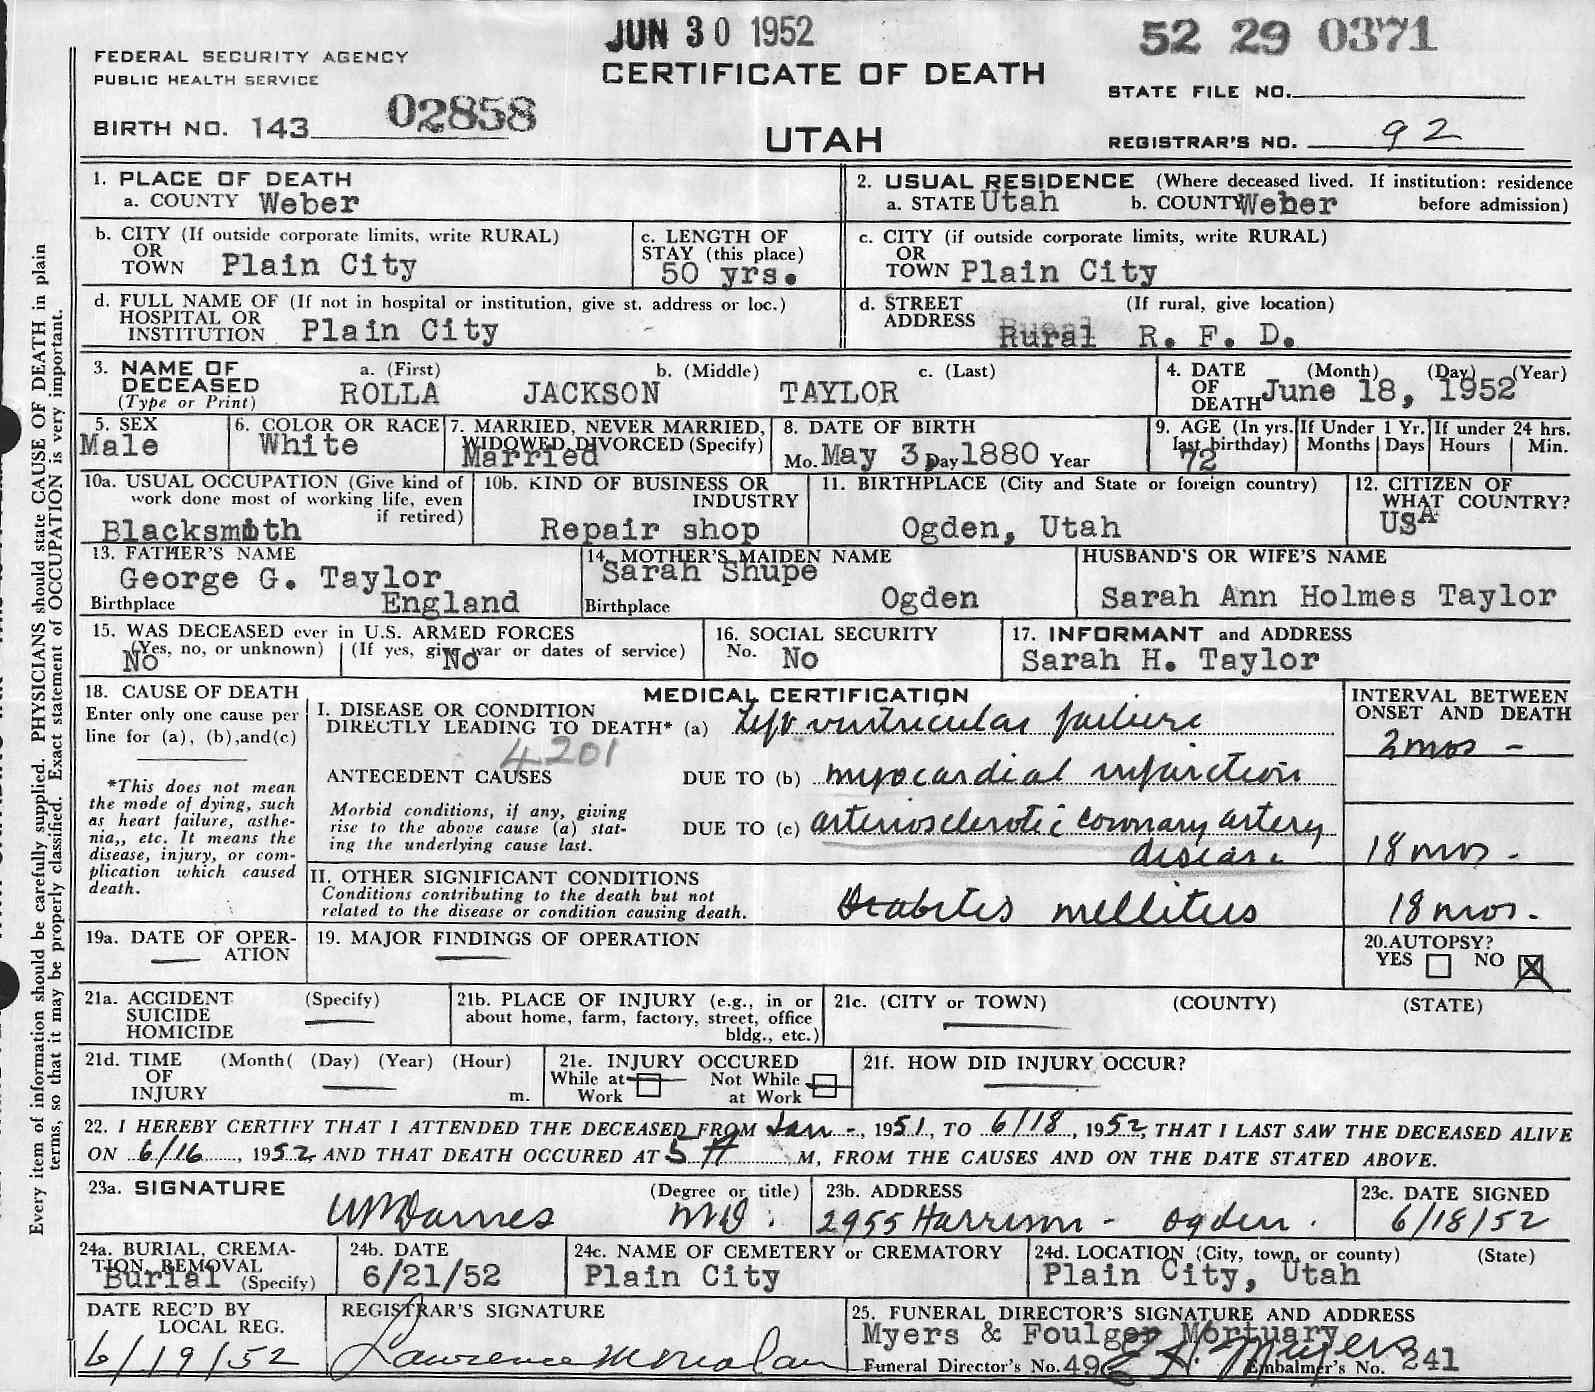 JUN 30 1952
52 29 0371
FEDERAL SECURITY AGENCY
PUBLIC HEALTH SERVICE
CERTIFICATE OF DEATH
STATE FILE NO.
BIRTH NO. 143 02858
UTAH
REGISTRAR'S NO. 92
1. PLACE OF DEATH
a. COUNTY Weber
2. USUAL RESIDENCE (Where deceased lived. If institution: residence
a. STATE Utah b. COUNTY Weber before admission)
b. CITY (If outside corporate limits, write RURAL)
OR
TOWN Plain City
c. LENGTH OF
STAY (this place)
50 yrs.
c. CITY (if outside corporate limits, write RURAL)
OR
TOWN Plain City
d. FULL NAME OF (If not in hospital or institution, give st. address or loc.)
HOSPITAL OR
INSTITUTION Plain City
d. STREET (If rural, give location)
ADDRESS Rural R. F. D.
3. NAME OF a. (First) b. (Middle) c. (Last)
DECEASED
(Type or Print) ROLLA JACKSON TAYLOR
4. DATE (Month) (Day) (Year)
OF
DEATH June 18, 1952
5. SEX
Male
6. COLOR OR RACE
White
7. MARRIED, NEVER MARRIED,
WIDOWED, DIVORCED (Specify)
Married
8. DATE OF BIRTH
Mo. May 3, Day 1880 Year
9. AGE (In yrs. last birthday)
72
If Under 1 Yr.
Months Days
If under 24 hrs.
Hours Min.
10a. USUAL OCCUPATION (Give kind of
work done most of working life, even
if retired)
Blacksmith
10b. KIND OF BUSINESS OR
INDUSTRY
Repair shop
11. BIRTHPLACE (City and State or foreign country)
Ogden, Utah
12. CITIZEN OF
WHAT COUNTRY?
USA
13. FATHER'S NAME
George G. Taylor
Birthplace England
14. MOTHER'S MAIDEN NAME
Sarah Shupe
Birthplace Ogden
HUSBAND'S OR WIFE'S NAME
Sarah Ann Holmes Taylor
15. WAS DECEASED ever in U.S. ARMED FORCES
(Yes, no, or unknown) (If yes, give war or dates of service)
No No
16. SOCIAL SECURITY
No. No
17. INFORMANT and ADDRESS
Sarah H. Taylor
18. CAUSE OF DEATH
Enter only one cause per
line for (a), (b), and (c)
*This does not mean
the mode of dying, such
as heart failure, asthe-
nia,, etc. It means the
disease, injury, or com-
plication which caused
death.
MEDICAL CERTIFICATION
I. DISEASE OR CONDITION
DIRECTLY LEADING TO DEATH* (a) Left ventricular failure
4201
ANTECEDENT CAUSES DUE TO (b) myocardial infarction
Morbid conditions, if any, giving
rise to the above cause (a) stat-
ing the underlying cause last.
DUE TO (c) arteriosclerotic coronary artery
disease.
II. OTHER SIGNIFICANT CONDITIONS
Conditions contributing to the death but not
related to the disease or condition causing death.
Diabetes mellitus
INTERVAL BETWEEN
ONSET AND DEATH
2 mos -
18 mos -
18 mos.
19a. DATE OF OPER-
ATION
19. MAJOR FINDINGS OF OPERATION
20. AUTOPSY?
YES NO X
21a. ACCIDENT (Specify)
SUICIDE
HOMICIDE
21b. PLACE OF INJURY (e.g., in or
about home, farm, factory, street, office
bldg., etc.)
21c. (CITY or TOWN) (COUNTY) (STATE)
21d. TIME (Month( (Day) (Year) (Hour)
OF
INJURY m.
21e. INJURY OCCURED
While at Work Not While at Work
21f. HOW DID INJURY OCCUR?
22. I HEREBY CERTIFY THAT I ATTENDED THE DECEASED FROM Jan -, 1951, TO 6/18, 1952, THAT I LAST SAW THE DECEASED ALIVE
ON 6/16, 1952, AND THAT DEATH OCCURED AT 5 A M, FROM THE CAUSES AND ON THE DATE STATED ABOVE.
23a. SIGNATURE (Degree or title)
MD.
23b. ADDRESS
2955 Harrison - Ogden.
23c. DATE SIGNED
6/18/52
24a. BURIAL, CREMA-
TION, REMOVAL
(Specify)
Burial
24b. DATE
6/21/52
24c. NAME OF CEMETERY or CREMATORY
Plain City
24d. LOCATION (City, town, or county) (State)
Plain City, Utah
DATE REC'D BY
LOCAL REG.
6/19/52
REGISTRAR'S SIGNATURE
Lawrence
25. FUNERAL DIRECTOR'S SIGNATURE AND ADDRESS
Myers & Foulger Mortuary
Funeral Director's No. 49 Myers Embalmer's No. 241
Every item of information should be carefully supplied. PHYSICIANS should state CAUSE OF DEATH in plain
terms, so that it may be properly classified. Exact statement of OCCUPATION is very important.